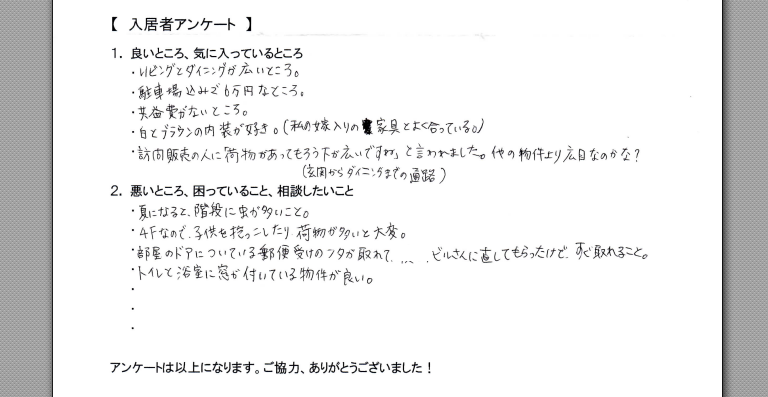 【 入居者アンケート 】
1. 良いところ、気に入っているところ
・リビングとダイニングが広いところ。
・駐車場込みで6万円なところ。
・共益費がないところ。
・白とブラウンの内装が好き。(私の嫁入りの家具とよく合っている。)
・訪問販売の人に「荷物があってもろう下が広いですね」と言われました。他の物件より広目なのかな?
(玄関からダイニングまでの通路)
2. 悪いところ、困っていること、相談したいこと
・夏になると、階段に虫が多いこと。
・4Fなので、子供を抱っこしたり、荷物が多いと大変。
・部屋のドアについている郵便受けのフタが取れて、 ビルさんに直してもらったけど、すぐ取れること。
・トイレと浴室に窓が付いている物件が良い。
・
・
・
アンケートは以上になります。ご協力、ありがとうございました!